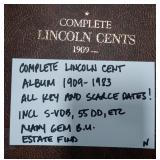 COMPLETE
LINCOLN CENTS
1909 ----
COMPLETE LINCOLN CENT
ALBUM 1909-1983
ALL KEY AND SCARCE DATES!
INCL S-VDB, 55 DD, ETC
MANY GEM B.U.
ESTATE FIND
N